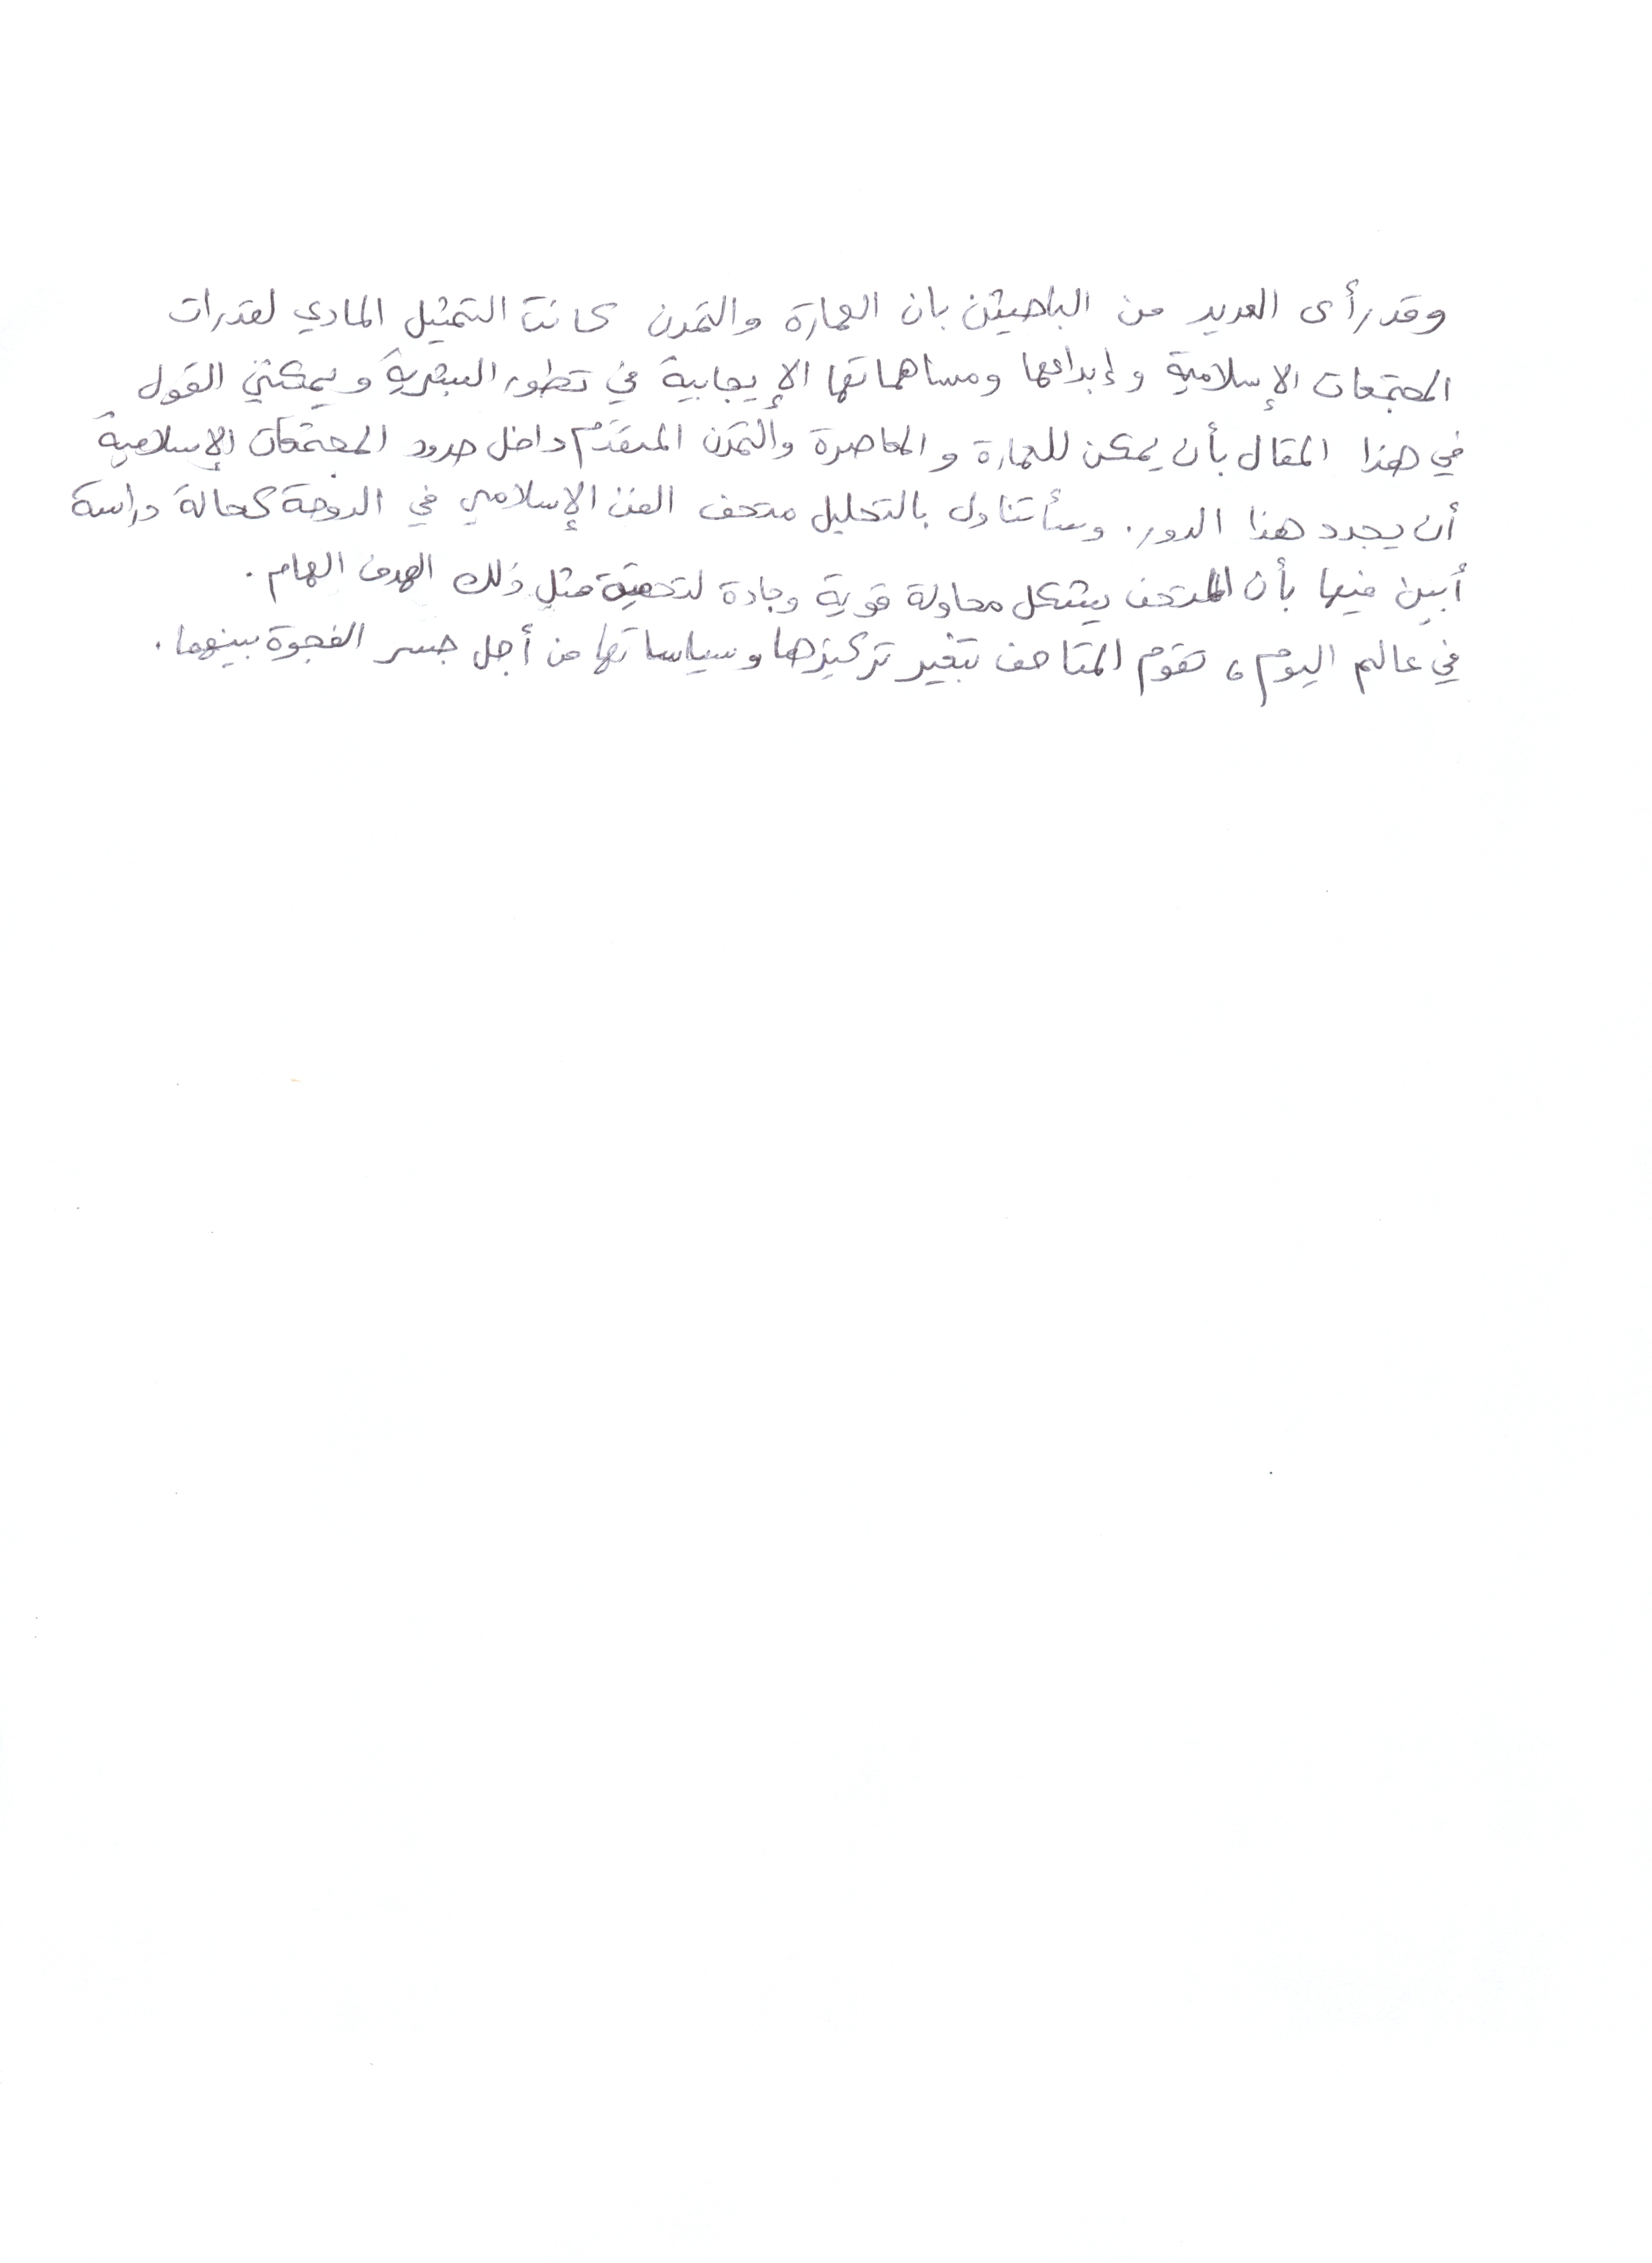 وقد رأى العديد من الباحثين بان العمارة والتمدن كانت التمثيل المادي لقدرات
المجتمعات الإسلامية وإبداعها ومساهماتها الإيجابية في تطور البشرية ويمكنني القول
في هذا المقال بأن يمكن للعمارة والمعاصرة والتمدن المتقدم داخل حدود المجتمعات الإسلامية
أن يجدد هذا الدور. وسأتناول بالتحليل متحف الفن الإسلامي في الدوحة كحالة دراسة
أبين فيها بأن المتحف يشكل محاولة قوية وجادة لتحقيق مثل ذلك الهدف الهام.
في عالم اليوم، تقوم المتاحف بتغيير تركيزها وسياساتها من أجل جسر الفجوة بينهما.